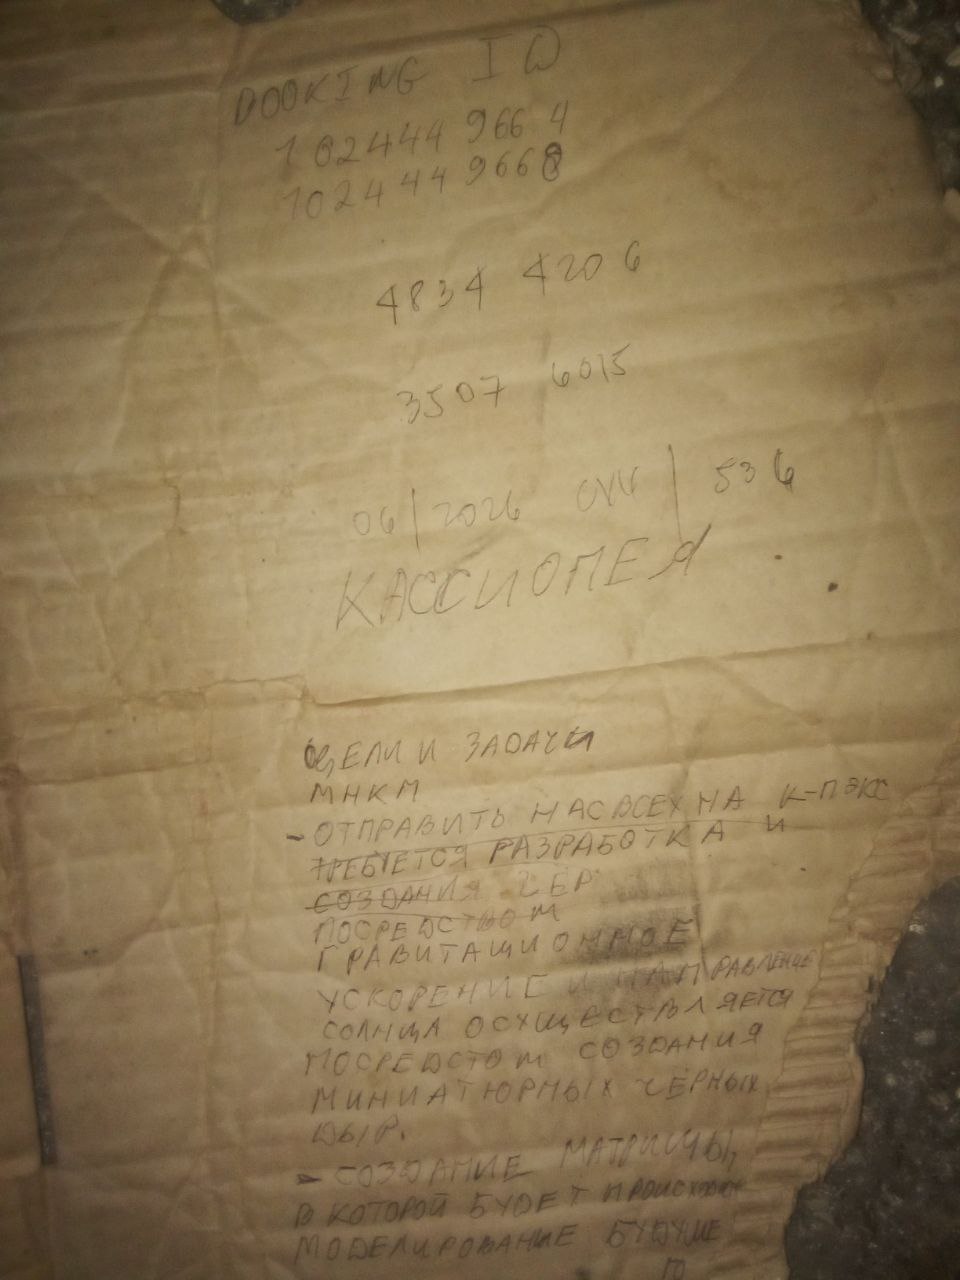 BOOKING ID
102444 9664
102444 9668
4834 4206
3507 6015
06/2026 CVV/536
КАССИОПЕЯ
ЦЕЛИ И ЗАДАЧИ
МНКМ
- ОТПРАВИТЬ НАС ВСЕХ НА К-ПЭКС
ТРЕБУЕТСЯ РАЗРАБОТКА И
СОЗДАНИЯ
ПОСРЕДСТВОМ
ГРАВИТАЦИОННОЕ
УСКОРЕНИЕ И НАПРАВЛЕНИЕ
СОЛНЦА ОСУЩЕСТВЛЯЕТСЯ
ПОСРЕДСТОМ СОЗДАНИЯ
МИНИАТЮРНЫХ ЧЁРНЫХ
ДЫР.
- СОЗДАНИЕ МАТРИЦЫ,
В КОТОРОЙ БУДЕТ
МОДЕЛИРОВАНИЕ